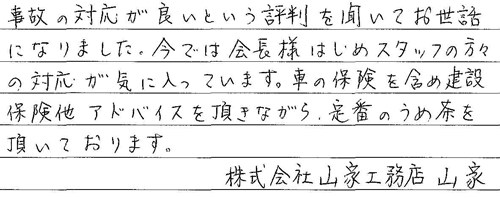 事故の対応が良いという評判を聞いてお世話
になりました。今では会長様はじめスタッフの方々
の対応が気に入っています。車の保険を含め建設
保険他アドバイスを頂きながら、定番のうめ茶を
頂いております。
株式会社山家工務店 山家